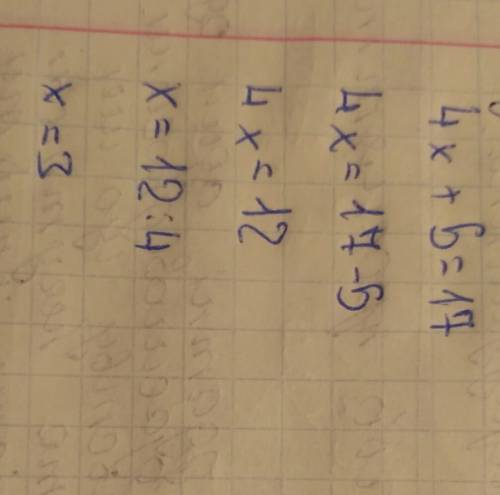 4x + 5 = 17
4x = 17 - 5
4x = 12
x = 12 : 4
x = 3